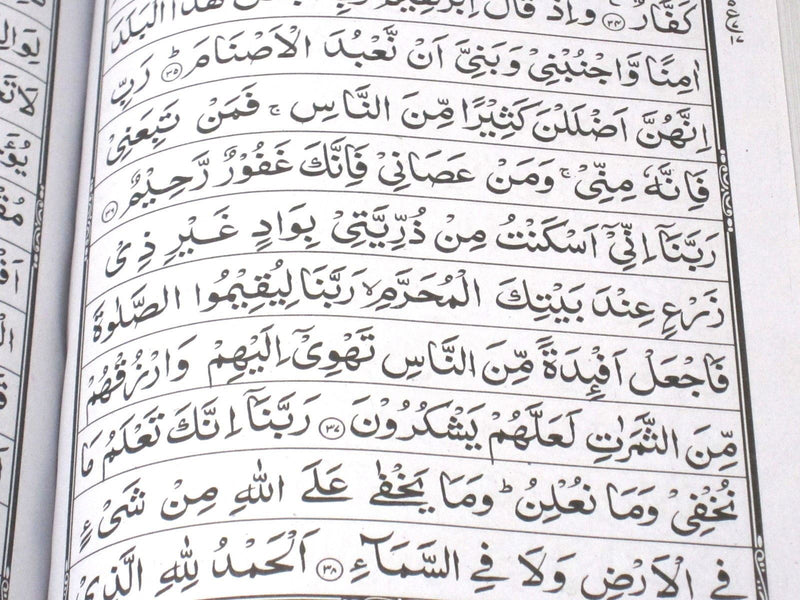 كَفَّارٌ ۝۳۴ وَاِذْ قَالَ اِبْرٰهِيْمُ رَبِّ اجْعَلْ هٰذَا الْبَلَدَ
اٰمِنًا وَّاجْنُبْنِيْ وَبَنِيَّ اَنْ نَّعْبُدَ الْاَصْنَامَ ؕ۝۳۵ رَبِّ
اِنَّهُنَّ اَضْلَلْنَ كَثِيْرًا مِّنَ النَّاسِ ۚ فَمَنْ تَبِعَنِيْ
فَاِنَّهٗ مِنِّيْ ۚ وَمَنْ عَصَانِيْ فَاِنَّكَ غَفُوْرٌ رَّحِيْمٌ ۝۳۶
رَبَّنَاۤ اِنِّيْۤ اَسْكَنْتُ مِنْ ذُرِّيَّتِيْ بِوَادٍ غَيْرِ ذِيْ
زَرْعٍ عِنْدَ بَيْتِكَ الْمُحَرَّمِ ۙ رَبَّنَا لِيُقِيْمُوا الصَّلٰوةَ
فَاجْعَلْ اَفْـِٕدَةً مِّنَ النَّاسِ تَهْوِيْۤ اِلَيْهِمْ وَارْزُقْهُمْ
مِّنَ الثَّمَرٰتِ لَعَلَّهُمْ يَشْكُرُوْنَ ۝۳۷ رَبَّنَاۤ اِنَّكَ تَعْلَمُ مَا
نُخْفِيْ وَمَا نُعْلِنُ ؕ وَمَا يَخْفٰى عَلَى اللّٰهِ مِنْ شَيْءٍ
فِي الْاَرْضِ وَلَا فِي السَّمَآءِ ۝۳۸ اَلْحَمْدُ لِلّٰهِ الَّذِيْ